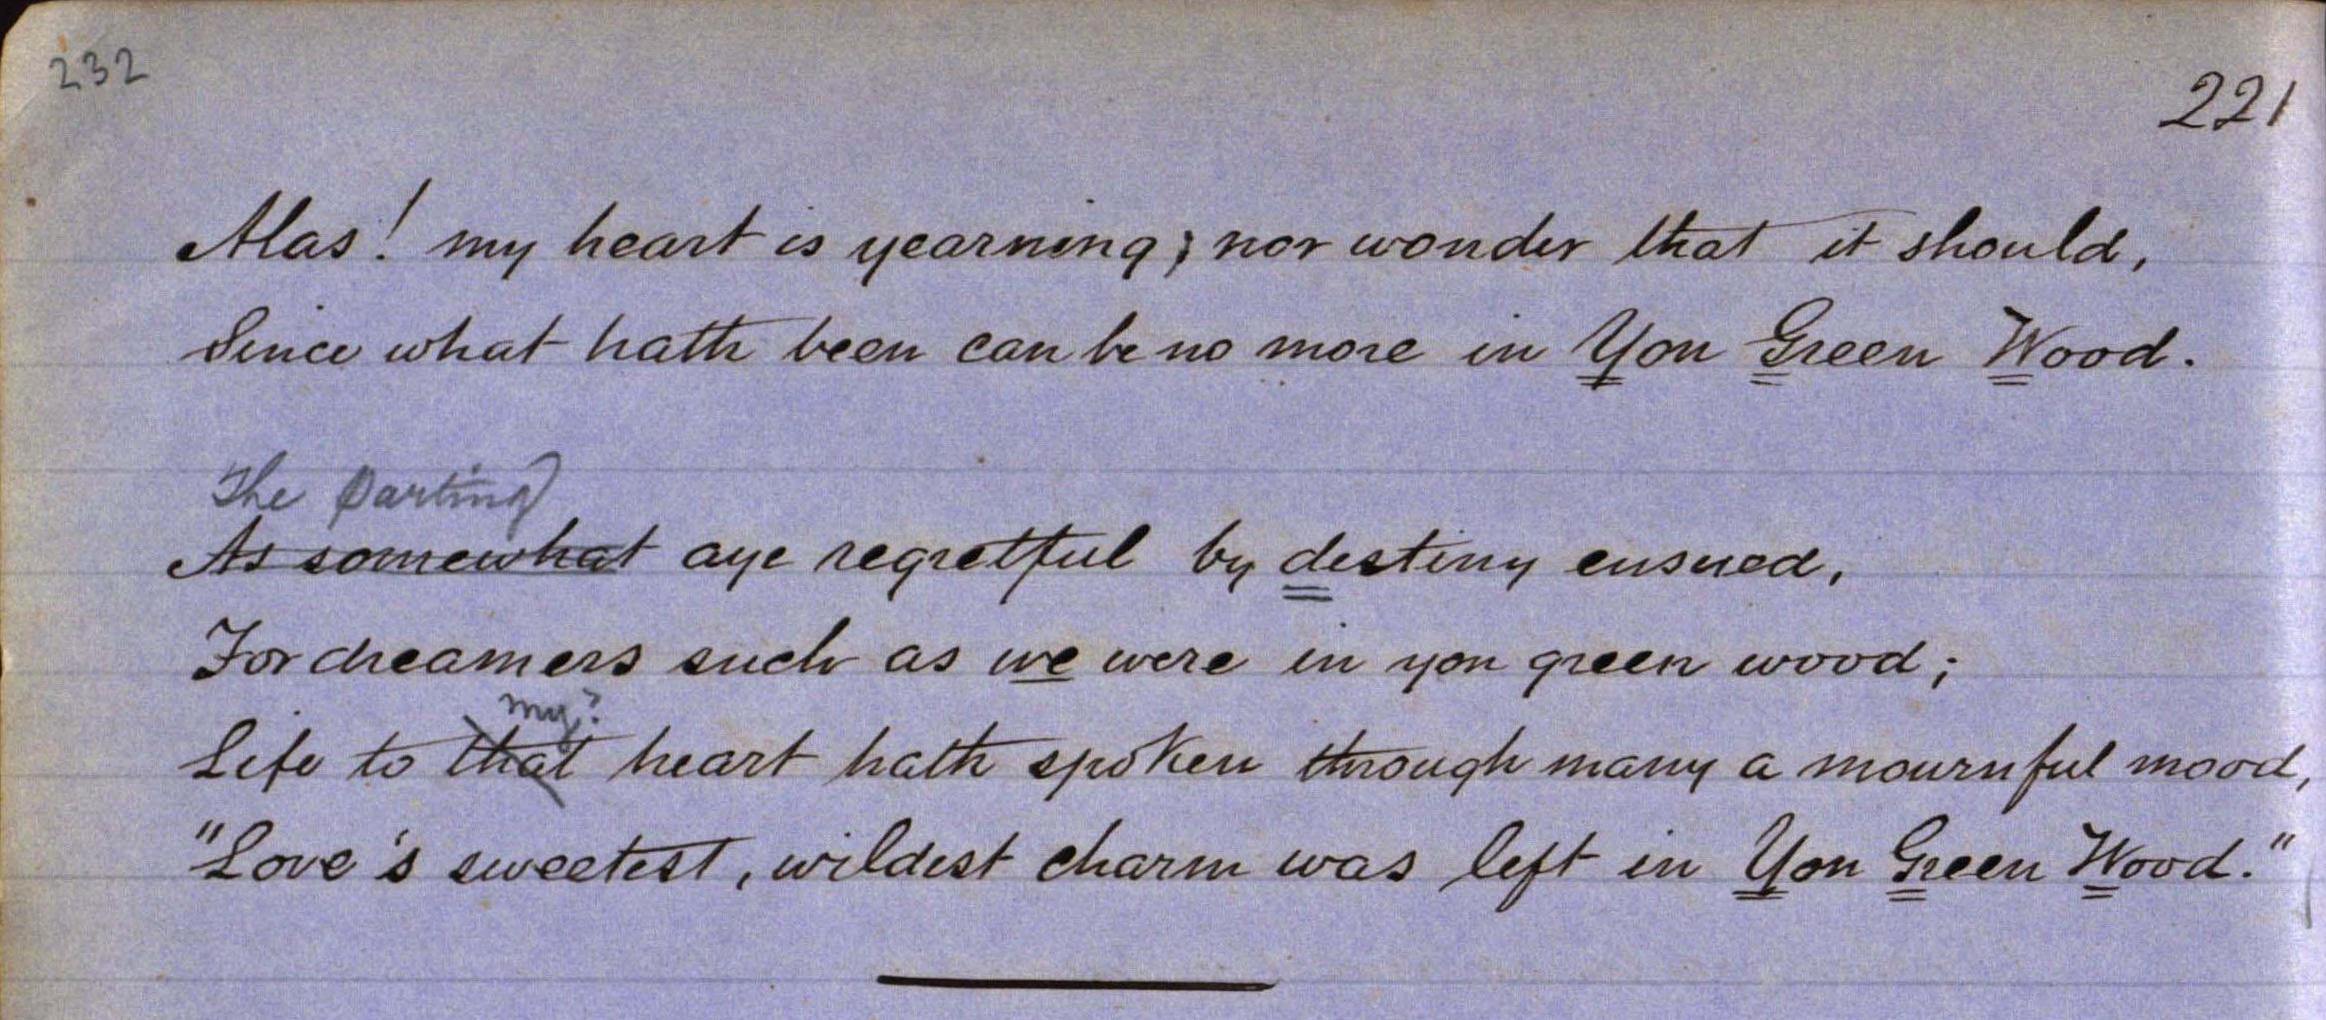 232
221
Alas! my heart is yearning; nor wonder that it should,
Since what hath been can be no more in Yon Green Wood.
The parting
As somewhat aye regretful by destiny ensued,
For dreamers such as we were in yon green wood;
my?
Life to that heart hath spoken through many a mournful mood,
"Love's sweetest, wildest charm was left in Yon Green Wood."